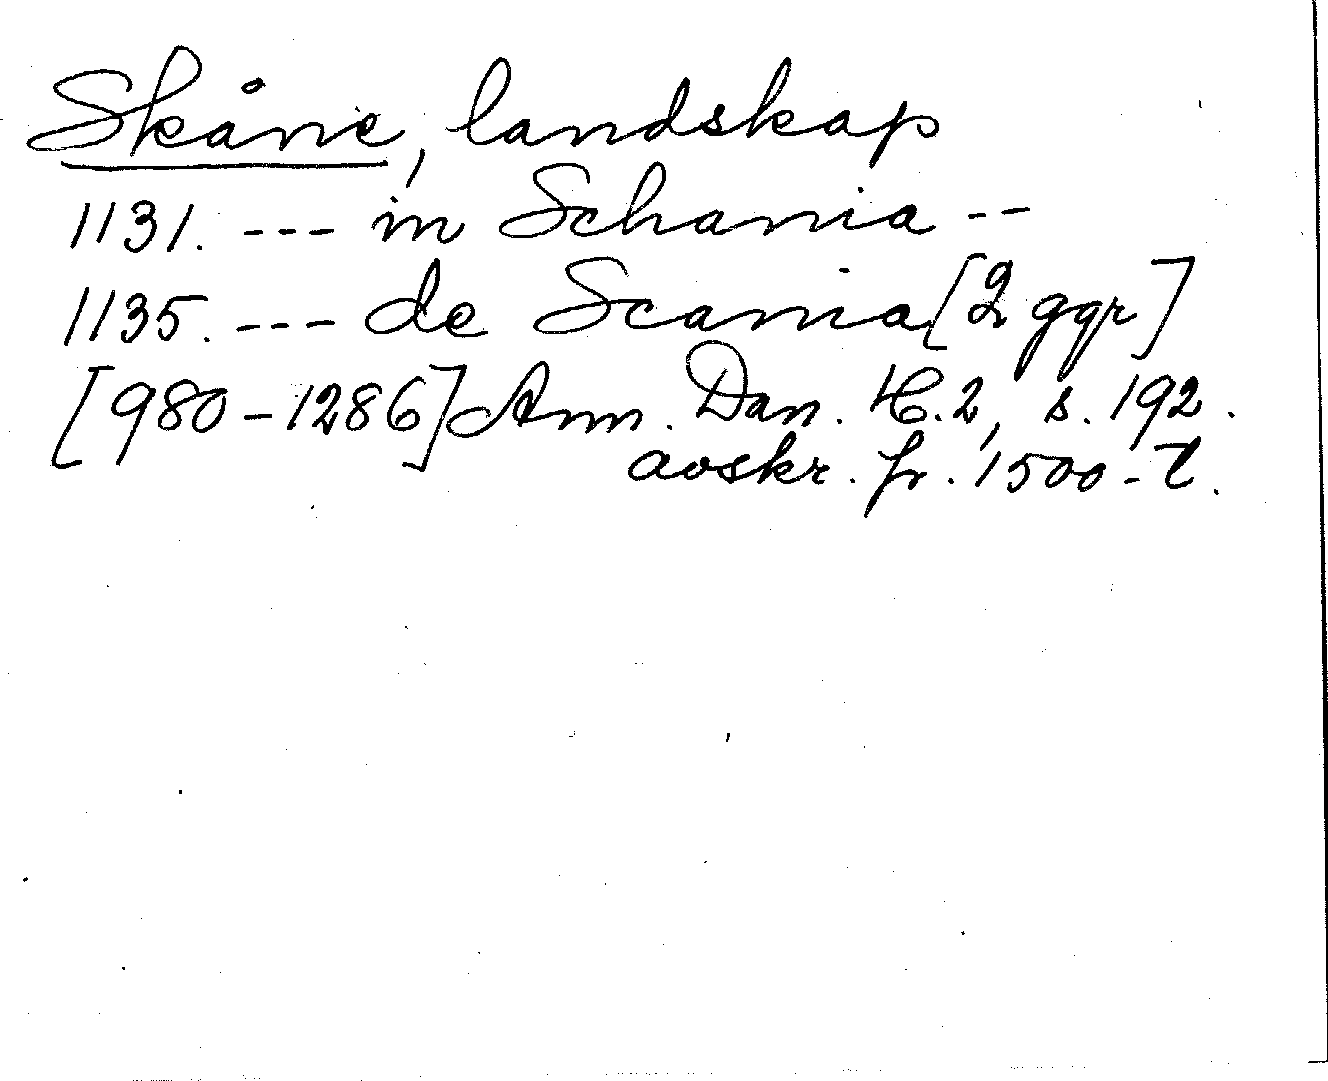 Skåne, landskap
1131. --- in Schania --
1135. --- de Scania [2 ggr]
[980-1286] Ann. Dan. H.2, s. 192.
avskr. fr. 1500-t.